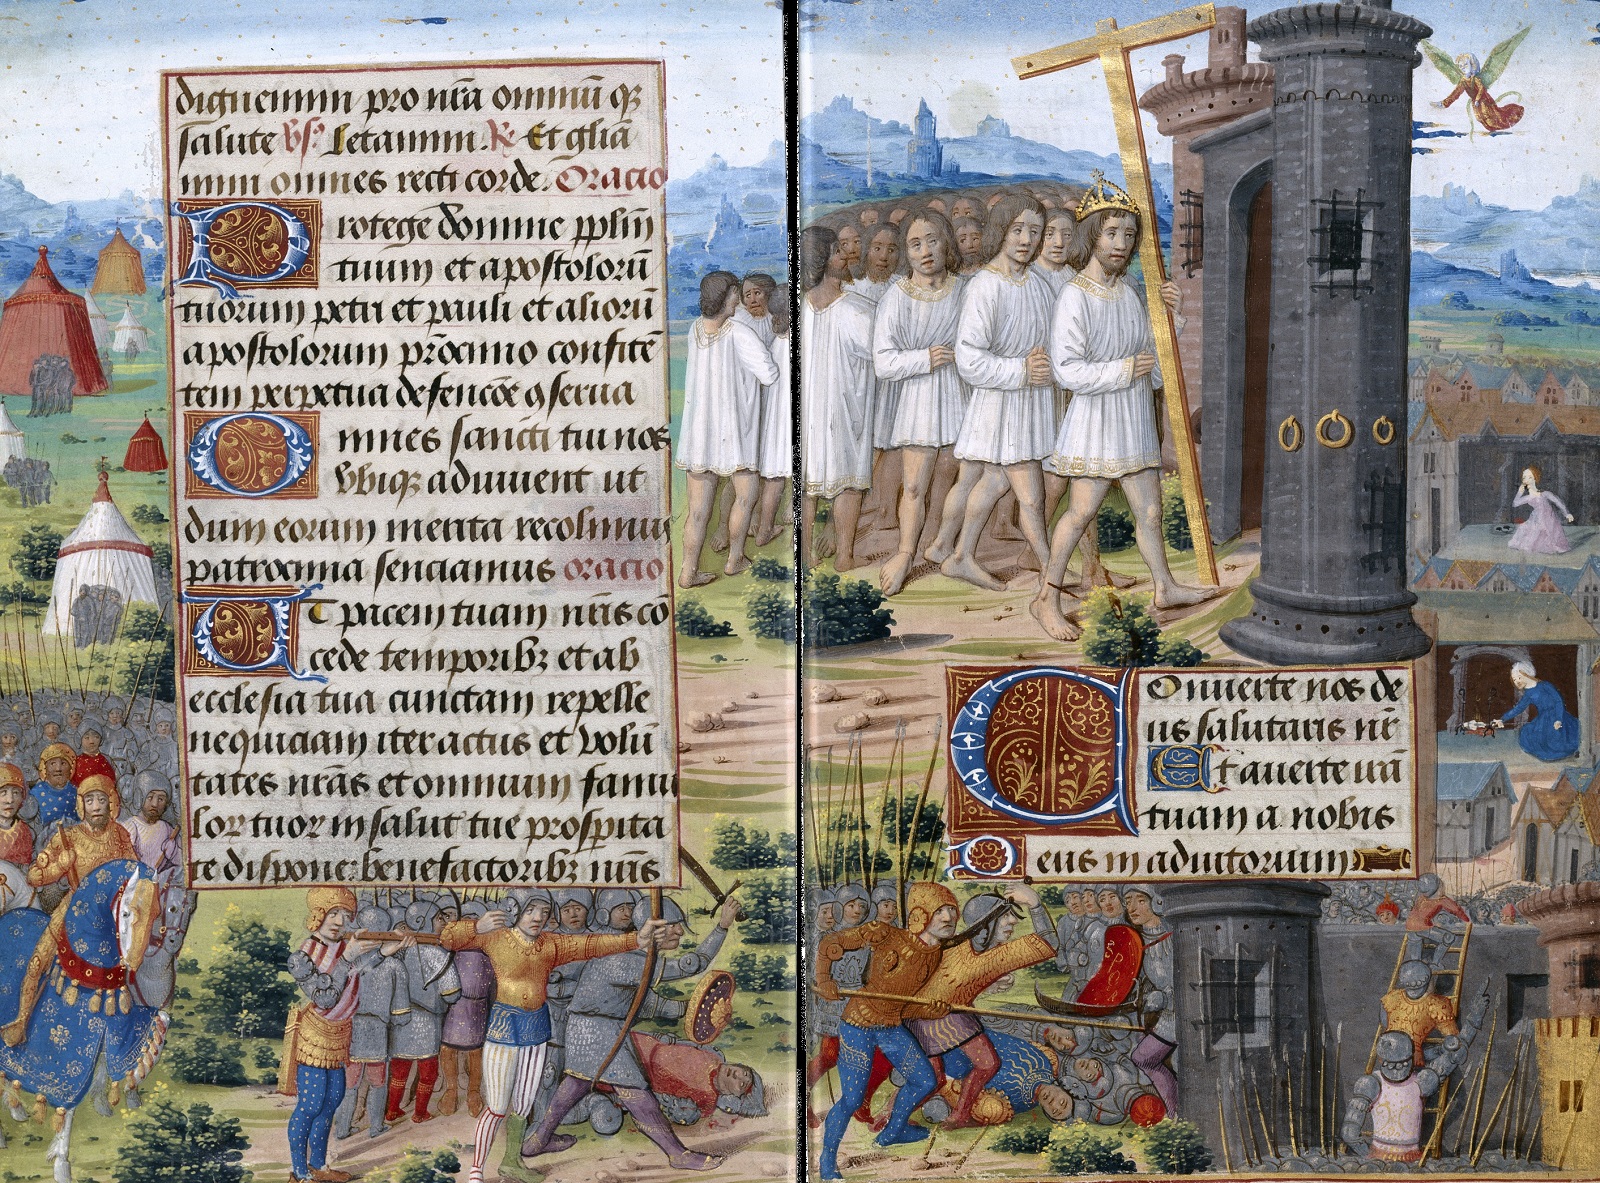 dignemini pro nr̄a omniū q̄
salute v̄s. Letamini. R̄ Et gl̄ia
mini omnes recti corde. Oracio
Protege domine pp̄lm̄
tuum et apostolorū
tuorum petri et pauli et aliorū
apostolorum pr̄ocinio confitē
tem perpetua defencōe ꝯserua
Omnes sancti tui nos
vbiqꝫ adiuuent ut
dum eorum merita recolimus
patrocinia senciamus oracio
Et pacem tuam nr̄is cō
cede temporibꝫ et ab
ecclesia tua cunctam repelle
nequiciam iter actus et volū
tates nr̄as et omnium famu
lorꝝ tuorꝝ in salut tue prosperita
te dispone: benefactoribꝫ nr̄is
Conuerte nos de
us salutaris nr̄
Et auerte irā
tuam a nobis
Deus in adiutorium